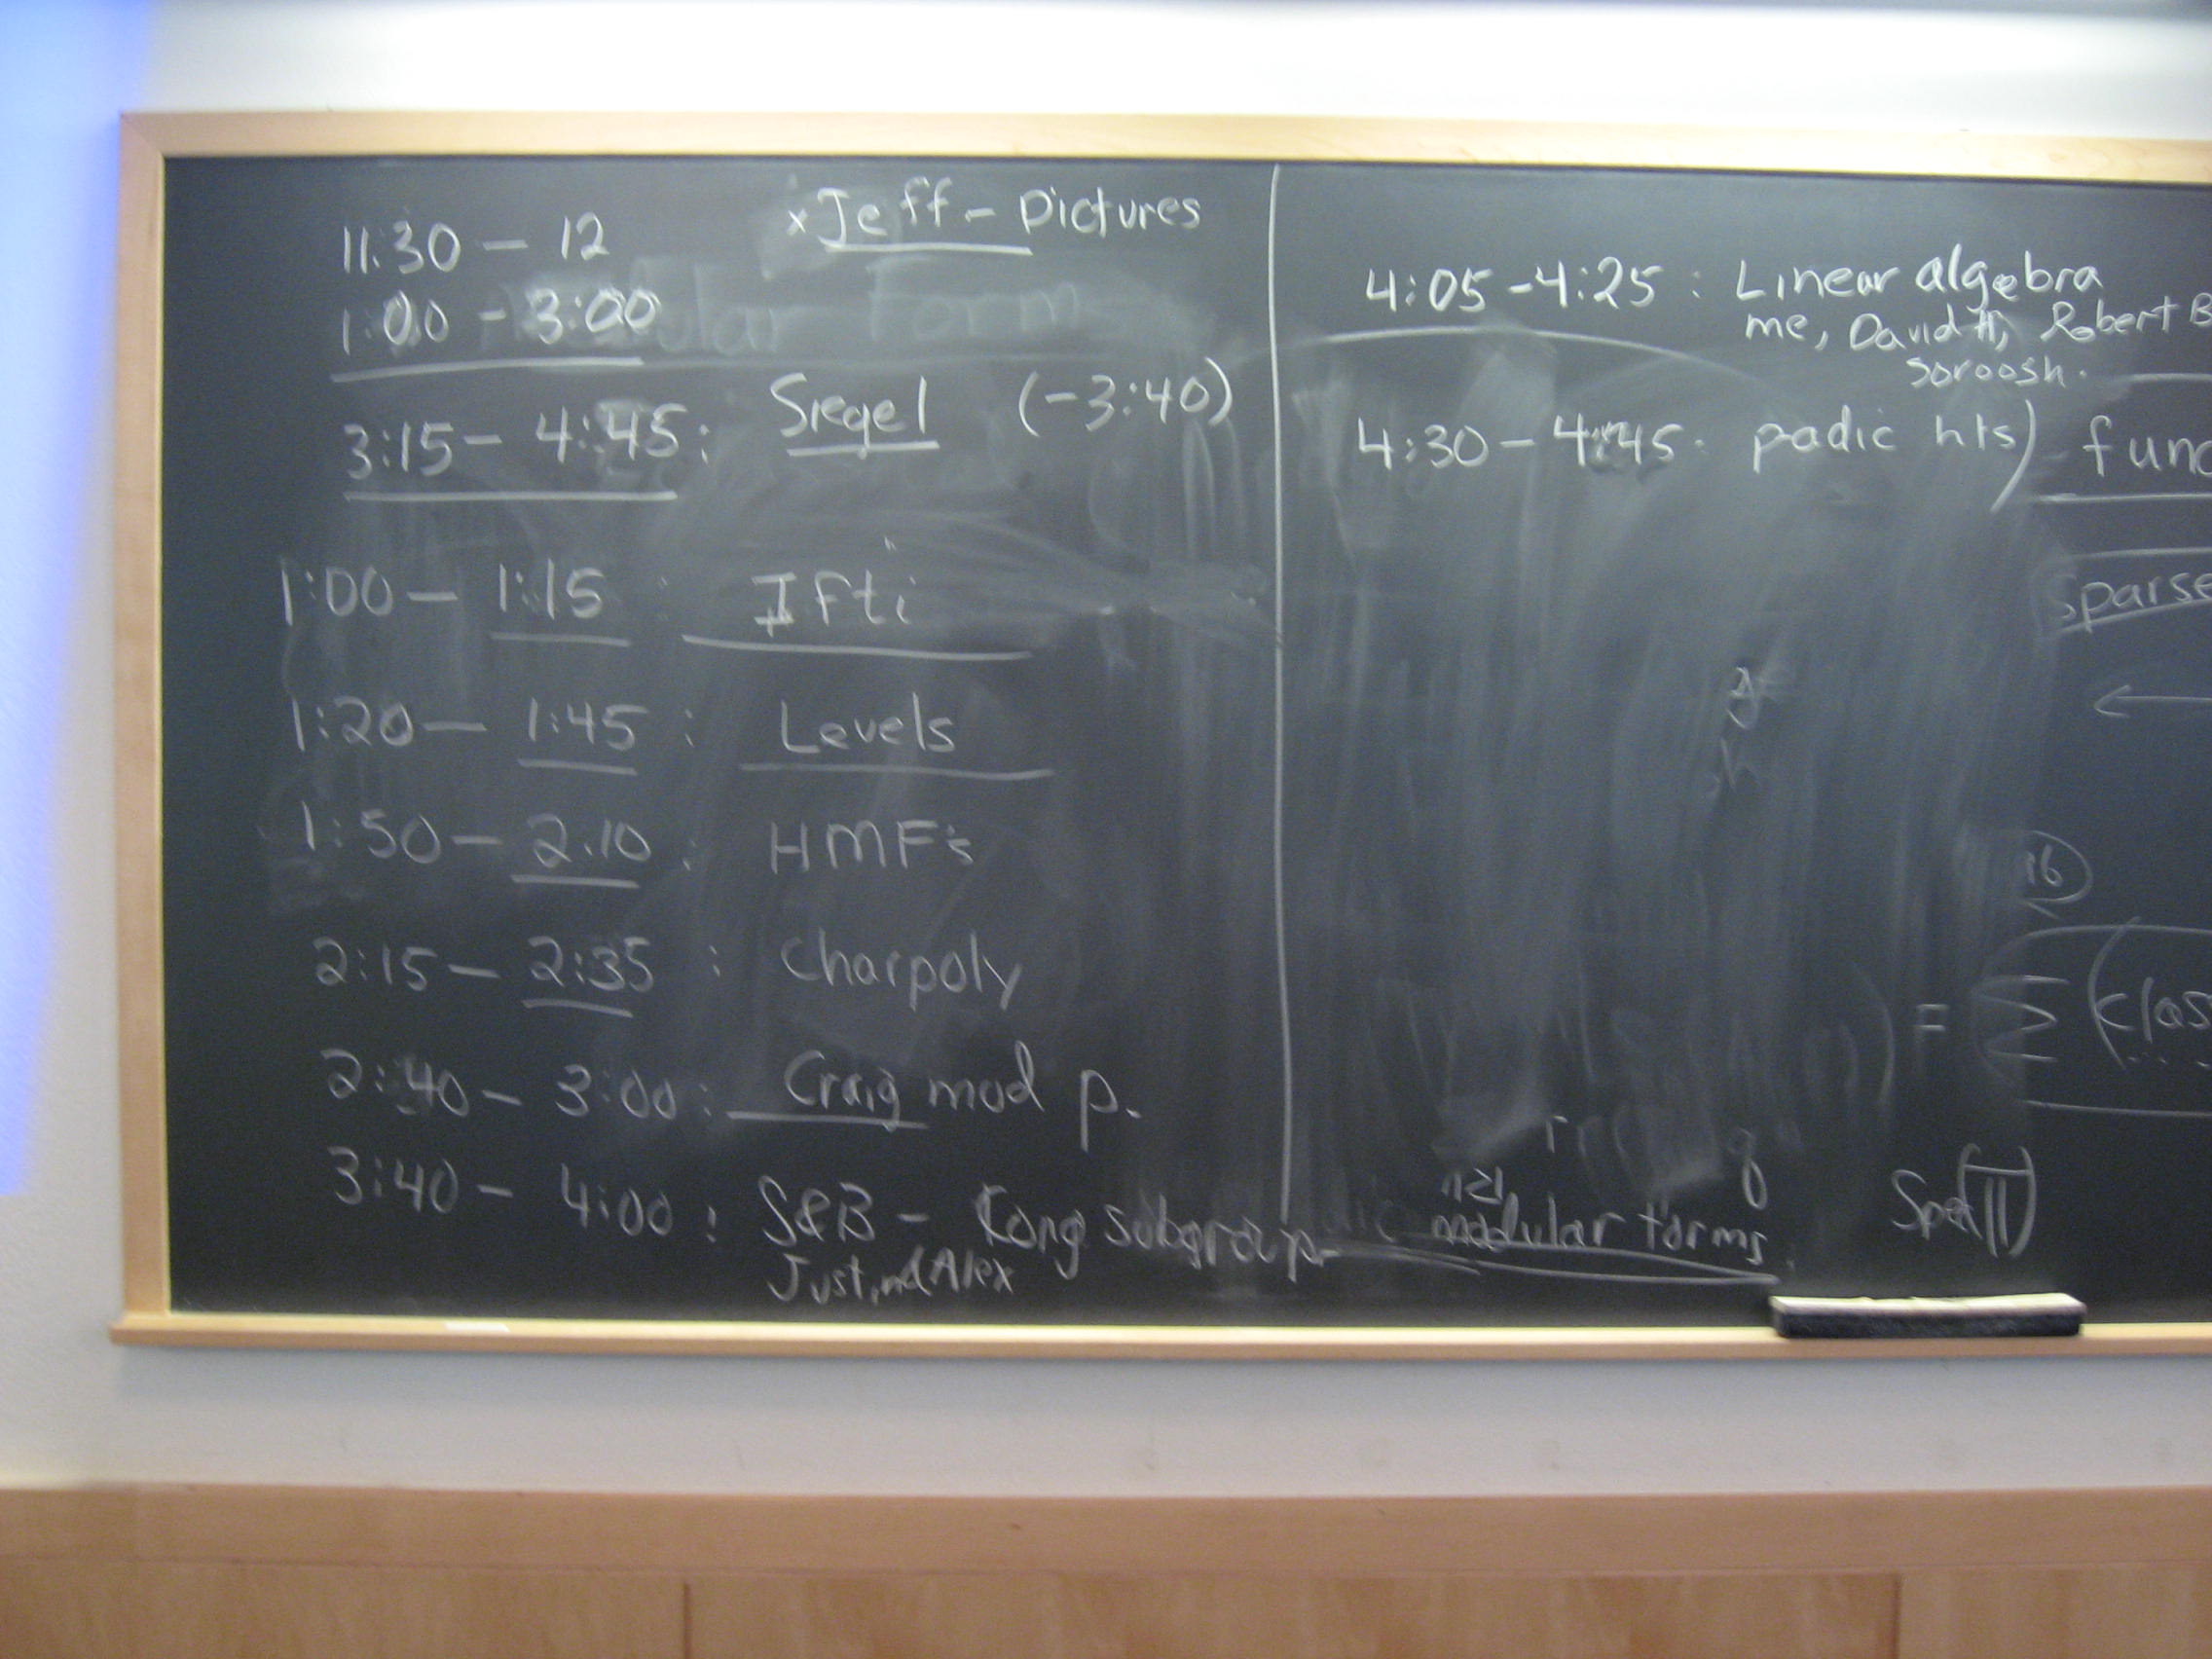 11:30 – 12 xJeff – Pictures
1:00 - 3:00
3:15 – 4:45: Siegel (-3:40)
1:00 – 1:15 : Ifti
1:20 – 1:45 : Levels
1:50 – 2:10 : HMF's
2:15 – 2:35 : Charpoly
2:40 – 3:00 : Craig mod p.
3:40 – 4:00 : S&B – Cong subgroup
Justin Alex
4:05 - 4:25 : Linear algebra
me, David H, Robert B
Soroosh.
4:30 – 4:45: padic hts) func
sparse
16
= Σ (clas
n≥1
modular forms